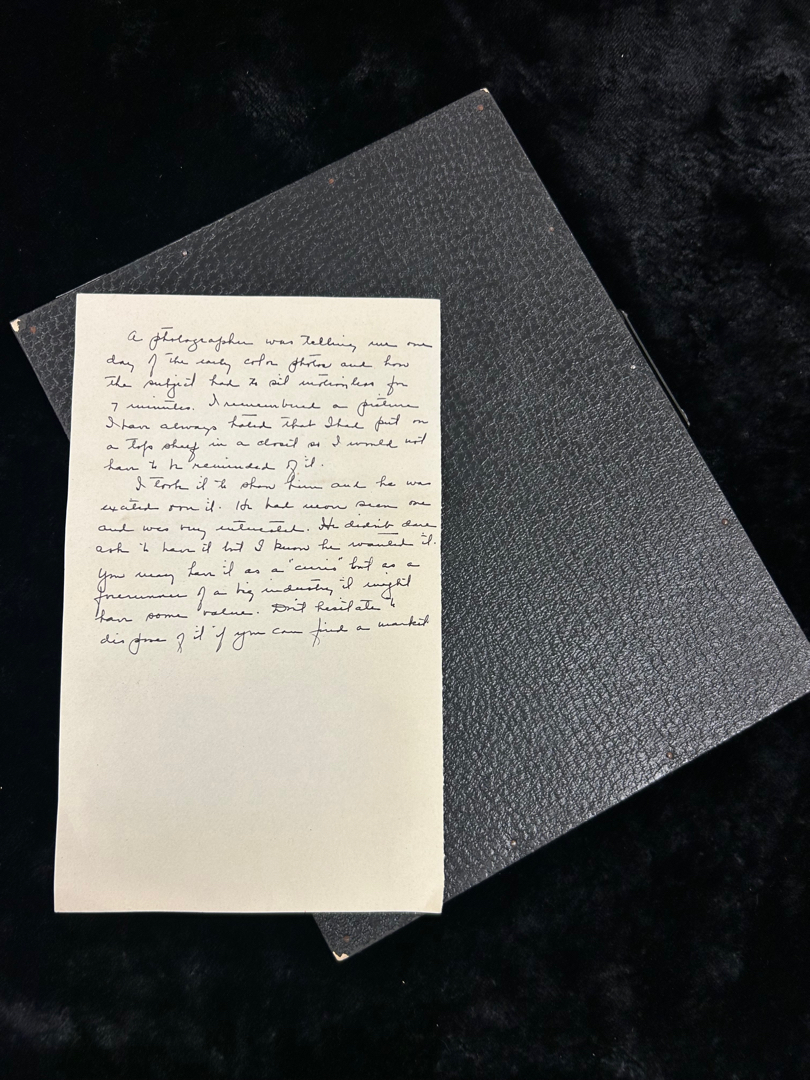 A photographer was telling me one
day of the early color photos and how
the subject had to sit motionless for
7 minutes. I remembered a picture
I have always hated that I had put on
a top shelf in a closet so I would not
have to be reminded of it.
I took it to show him and he was
excited over it. He had never seen one
and was very interested. He didn't dare
ask to have it but I know he wanted it.
You may have it as a "curio" but as a
forerunner of a big industry it might
have some value. Don't hesitate to
dispose of it if you can find a market